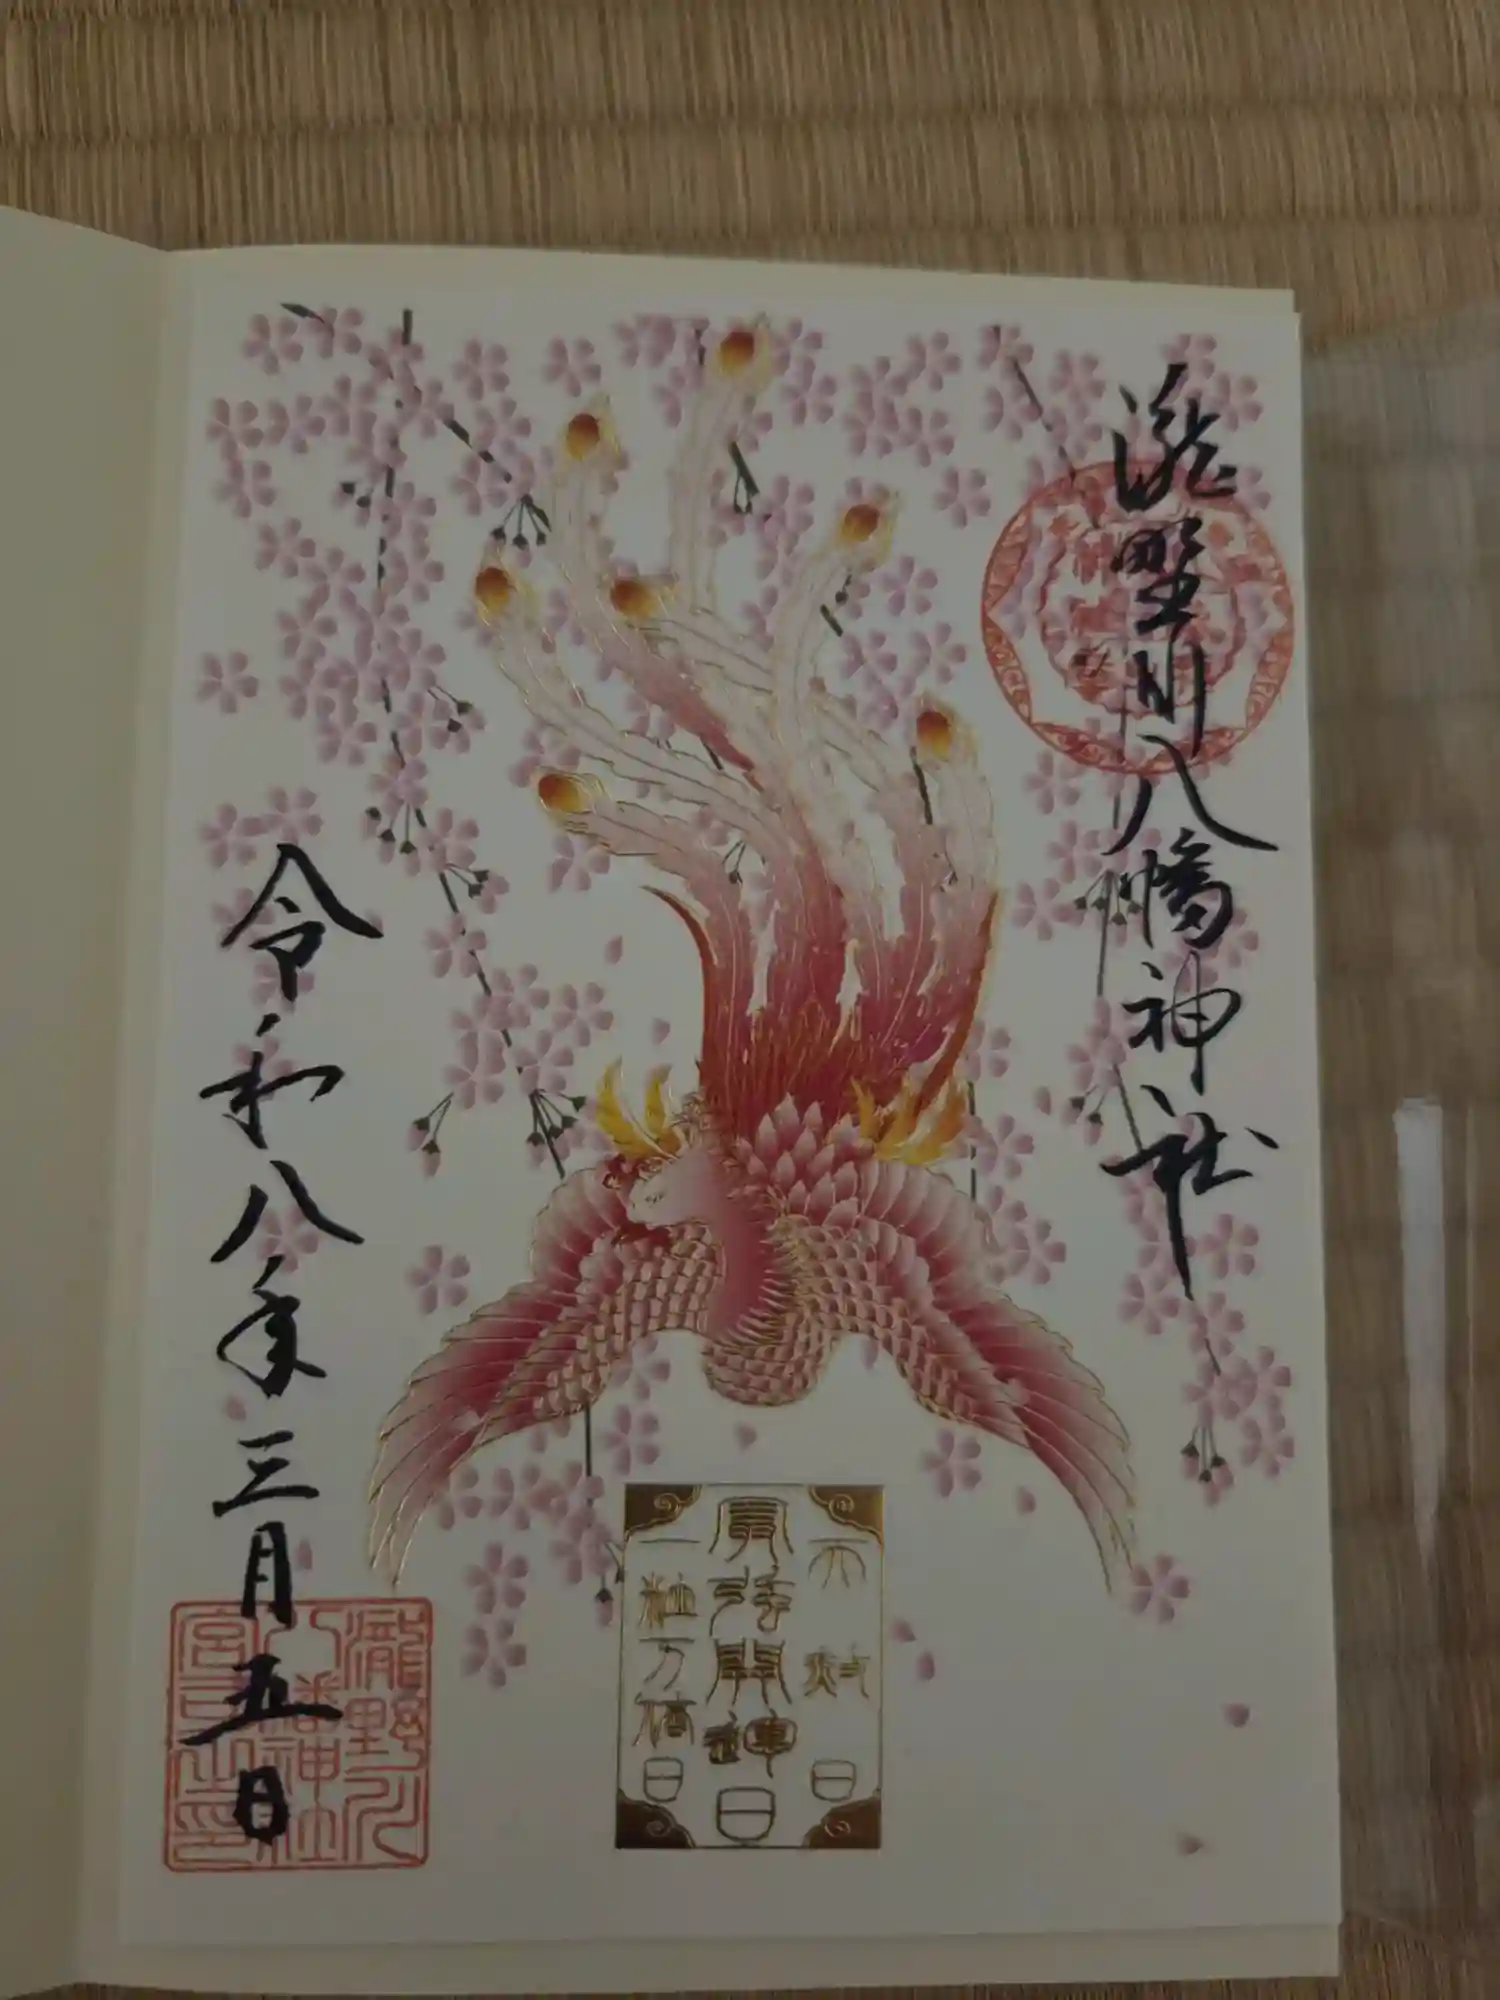 瀧野川八幡神社
天赦日
寅張開神日
一粒万倍日
令和八年三月五日
瀧野川
八幡神社
宮司之印